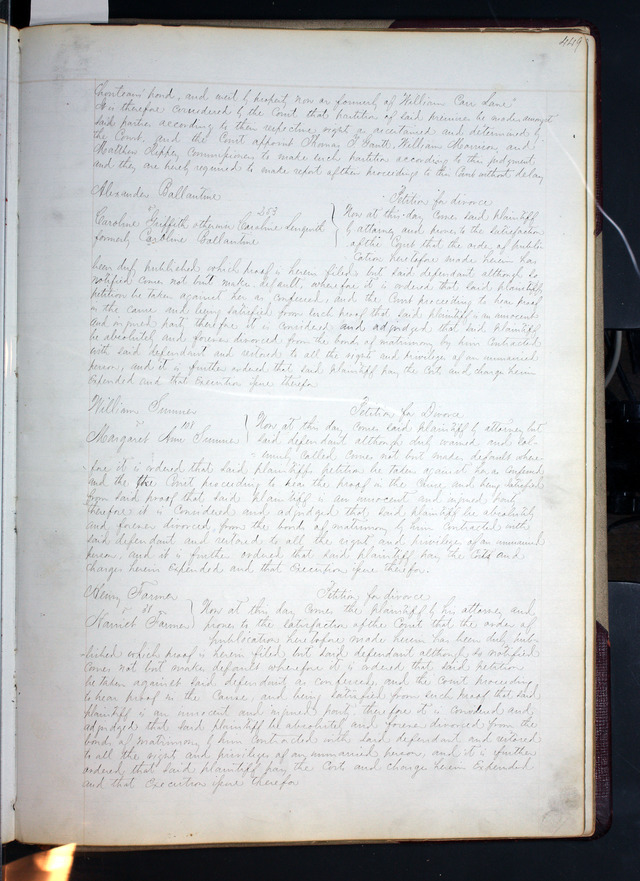 449
bond, and west by property now or formerly of William Carr Lane.
It is therefore considered by the Court that partition of said premises be made amongst
said parties according to their respective rights as ascertained and determined by
the Court, and the Court appoint Thomas J. William Morrison, and
Matthew Rippey Commissioners to make such partition according to this judgment,
and they are hereby required to make report of their proceedings to this Court without delay
Alexander Ballantine
vs 253
Caroline Griffith otherwise Caroline
formerly Caroline Ballantine
Petition for divorce
Now at this day come said plaintiff
by attorney and proves to the satisfaction
of the Court that the order of publi-
cation heretofore made herein has
been duly published which proof is herein filed but said defendant although so
notified comes not but makes default, wherefore it is ordered that said plaintiffs
petition be taken against her as confessed and the Court proceeding to hear proof
in the cause and being satisfied from such proof that said plaintiff is an innocent
and injured party therefore it is considered and adjudged that said plaintiff
be absolutely and forever divorced from the bonds of matrimony by him contracted
with said defendant and restored to all the rights and privileges of an unmarried
person, and it is further ordered that said plaintiff pay the Cost and charges herein
Expended and that Execution issue therefor
William Sumner
vs 108
Margaret Ann Sumner
Petition for Divorce
Now at this day comes said plaintiff by attorney but
said defendant although duly warned and sol-
emnly called comes not but makes default where-
fore it is ordered that said plaintiffs petition be taken against her as confessed
and the Court proceeding to hear the proof in the cause and being satisfied
from said proof that said plaintiff is an innocent and injured party
therefore it is Considered and adjudged that said plaintiff be absolutely
and forever divorced from the bonds of matrimony by him contracted with
said defendant and restored to all the rights and privileges of an unmarried
person, and it is further ordered that said plaintiff pay the Costs and
charges herein Expended and that Execution issue therefor.
Henry Farmer
vs 31
Harriet Farmer
Petition for divorce
Now at this day comes the plaintiff by his attorney and
proves to the satisfaction of the Court that the order of
publication heretofore made herein has been duly pub-
lished which proof is herein filed but said defendant although so notified
comes not but makes default wherefore it is ordered that said petition
be taken against said defendant as confessed, and the Court proceeding
to hear proof in the Cause, and being satisfied from such proof that said
plaintiff is an innocent and injured party therefore it is Considered and
adjudged that said plaintiff be absolutely and forever divorced from the
bonds of matrimony by him Contracted with said defendant and restored
to all the rights and privileges of an unmarried person, and it is further
ordered that said plaintiff pay the Cost and charges herein Expended
and that Execution issue therefor